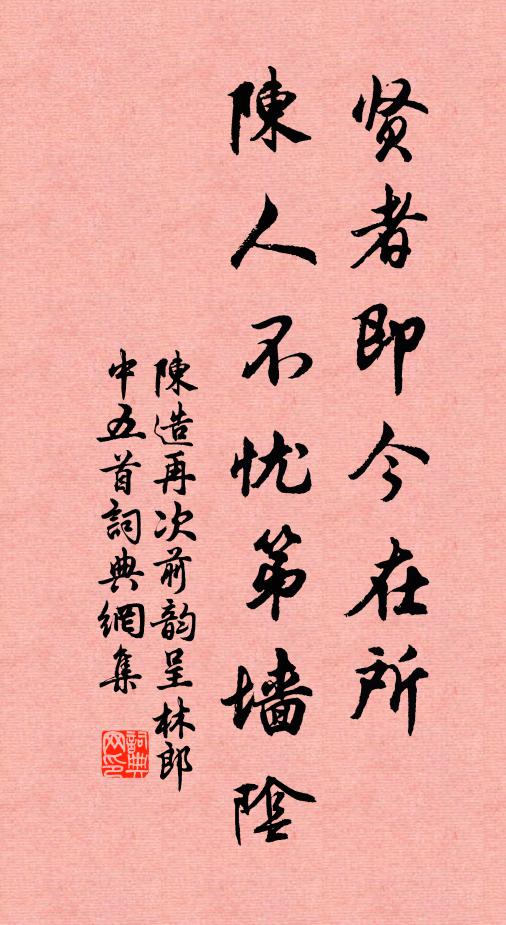 贤者即今在所
陳人不忧第墙陰
陳造再次前韵呈林郎
中五首詞典網集
詞典
网印